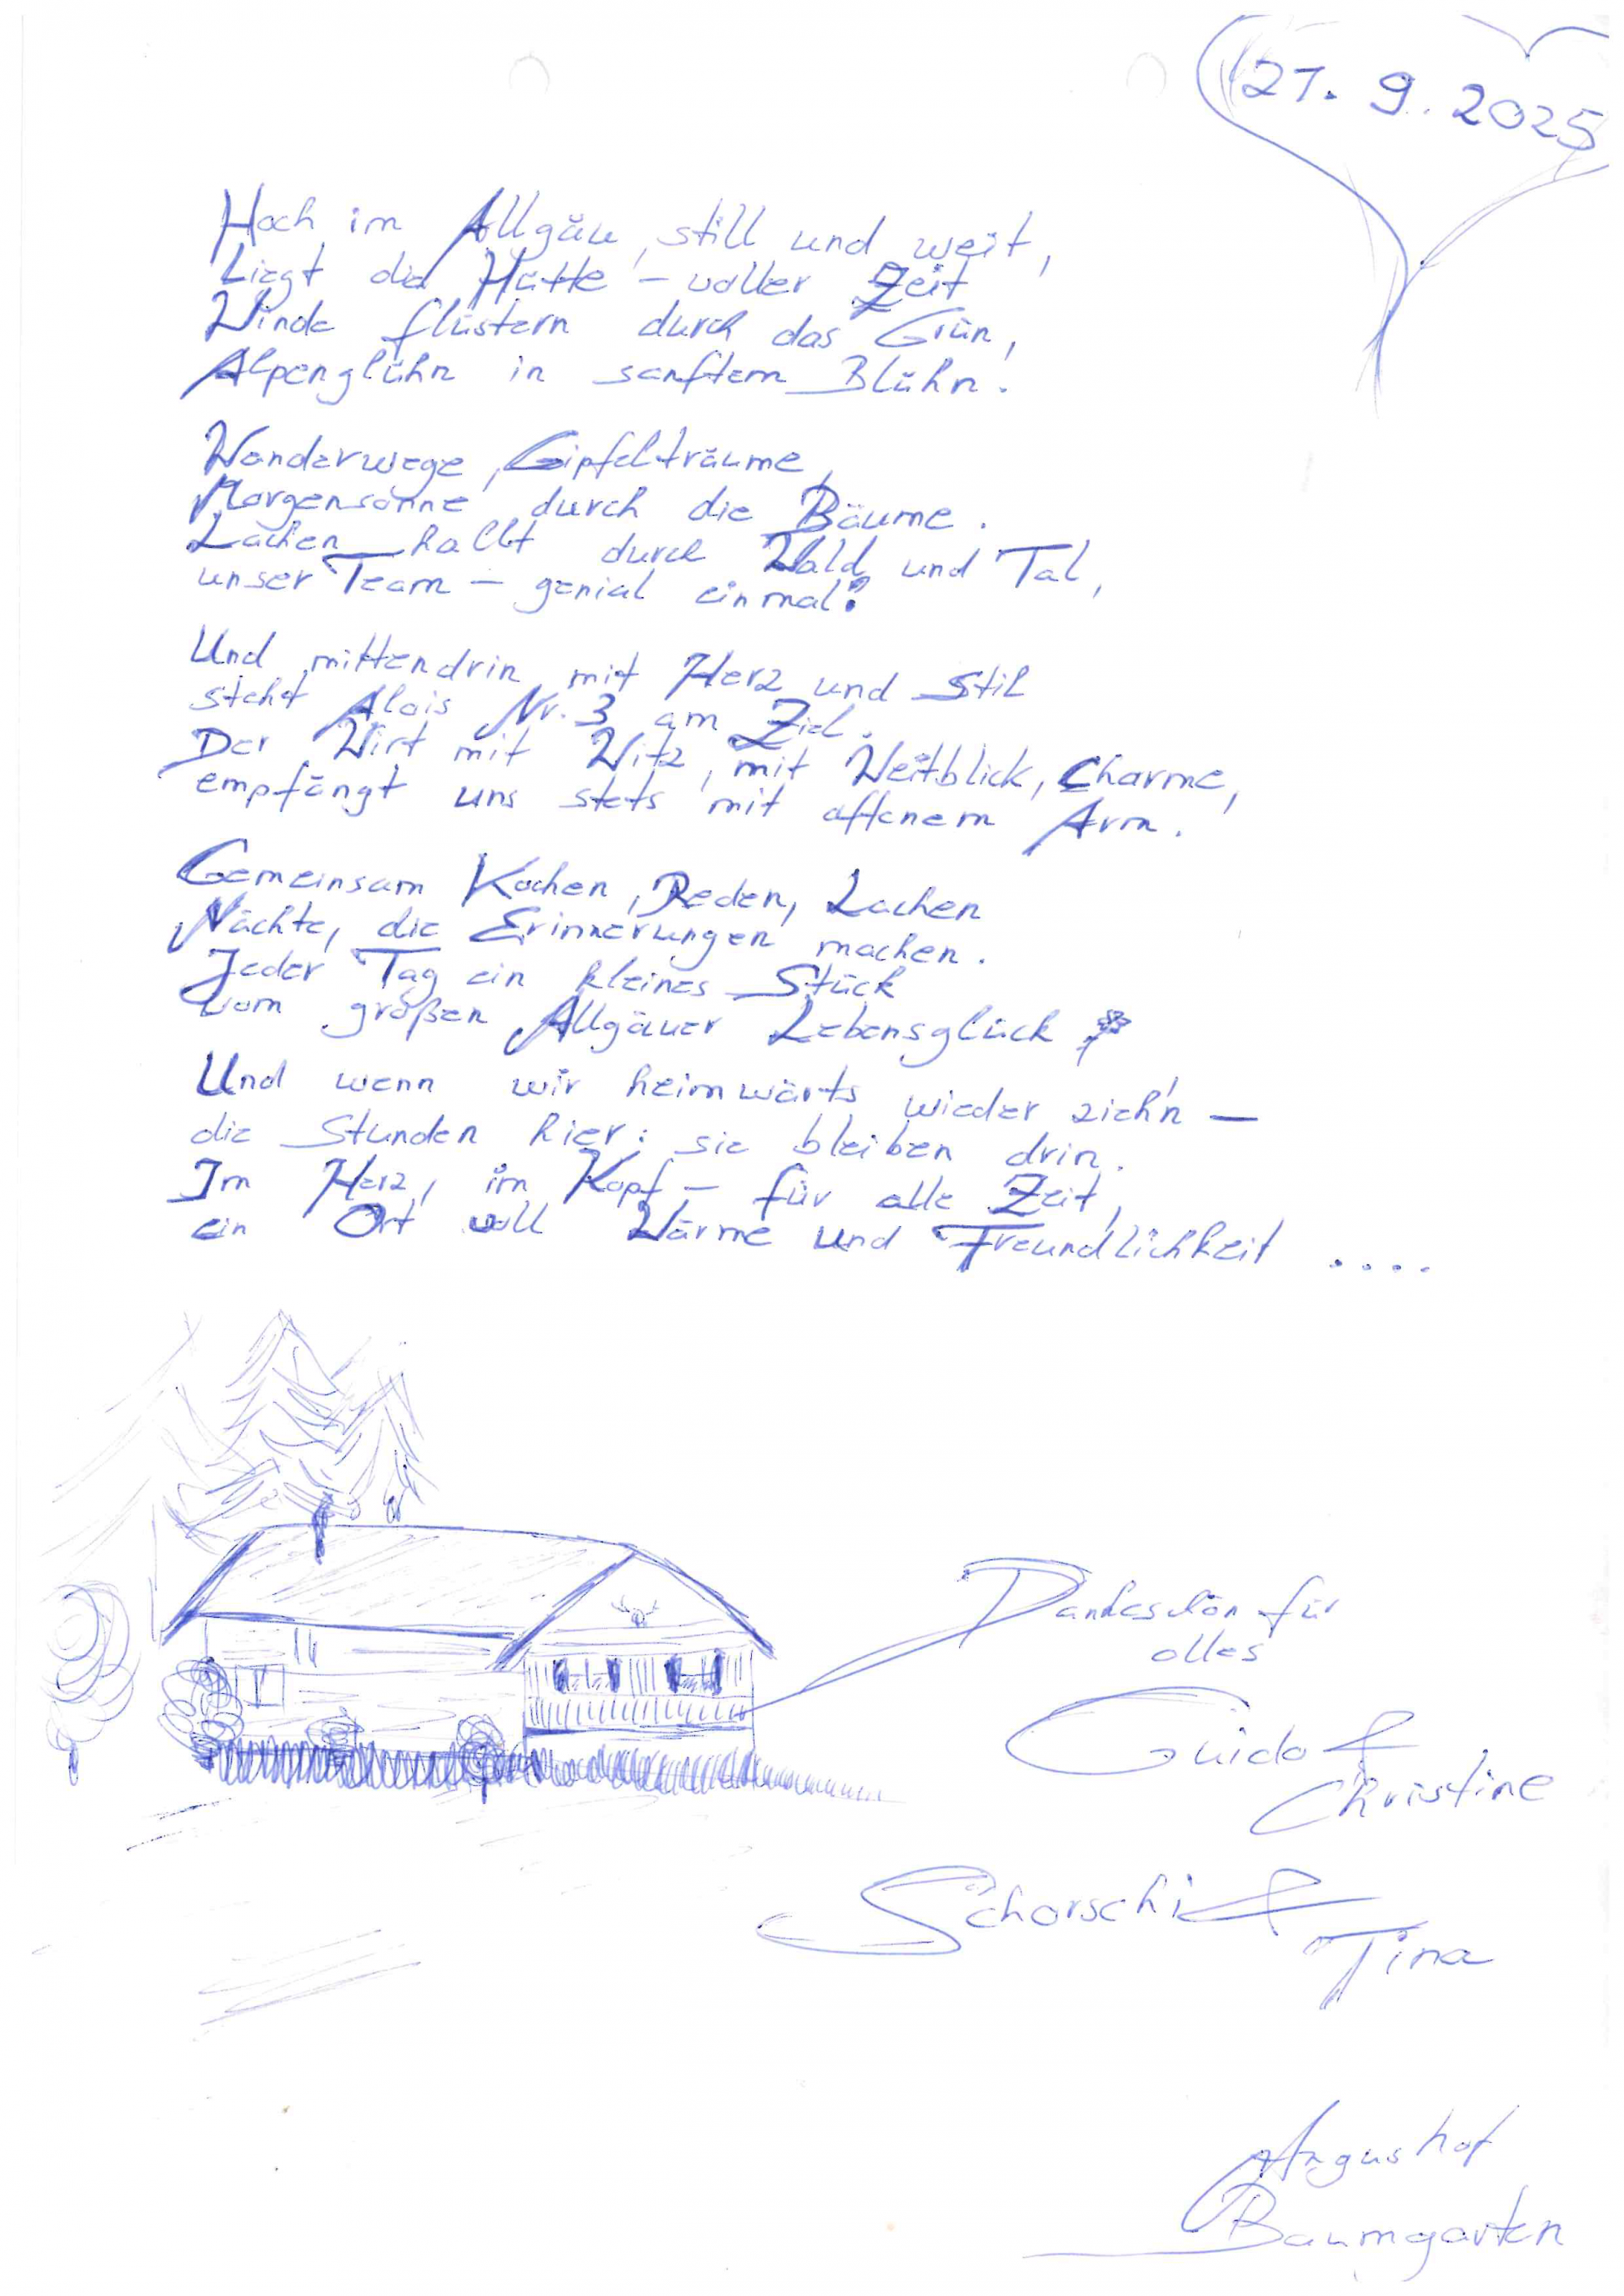 21. 9. 2025
Hoch im Allgäu, still und weit,
Liegt die Hütte – voller Zeit
Winde flüstern durch das Grün,
Alpenglühn in sanftem Blühn.
Wanderwege, Gipfelträume,
Morgensonne durch die Bäume.
Lachen hallt durch Wald und Tal,
unser Team – genial einmal!
Und mittendrin mit Herz und Stil
steht Alois Nr. 3 am Ziel.
Der Wirt mit Witz, mit Weitblick, Charme,
empfängt uns stets mit offenem Arm.
Gemeinsam Kochen, Reden, Lachen
Nächte, die Erinnerungen machen.
Jeder Tag ein kleines Stück
vom großen Allgäuer Lebensglück
Und wenn wir heimwärts wieder zieh'n –
die Stunden hier: sie bleiben drin.
Im Herz, im Kopf – für alle Zeit,
ein Ort voll Wärme und Freundlichkeit ....
Dankeschön für
alles
Guido &
Christine
Schorschi &
Tina
Angushof
Baumgarten